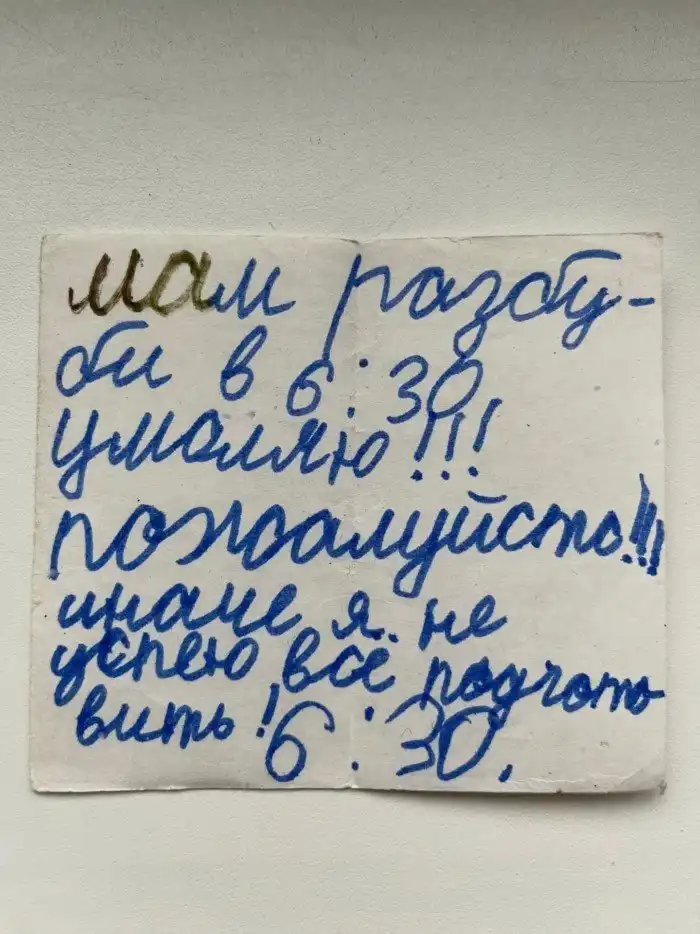 мам разбу-
ди в 6:30
умоляю!!!
пожалуйста!!!
иначе я не
успею всё подгото
вить! 6:30.